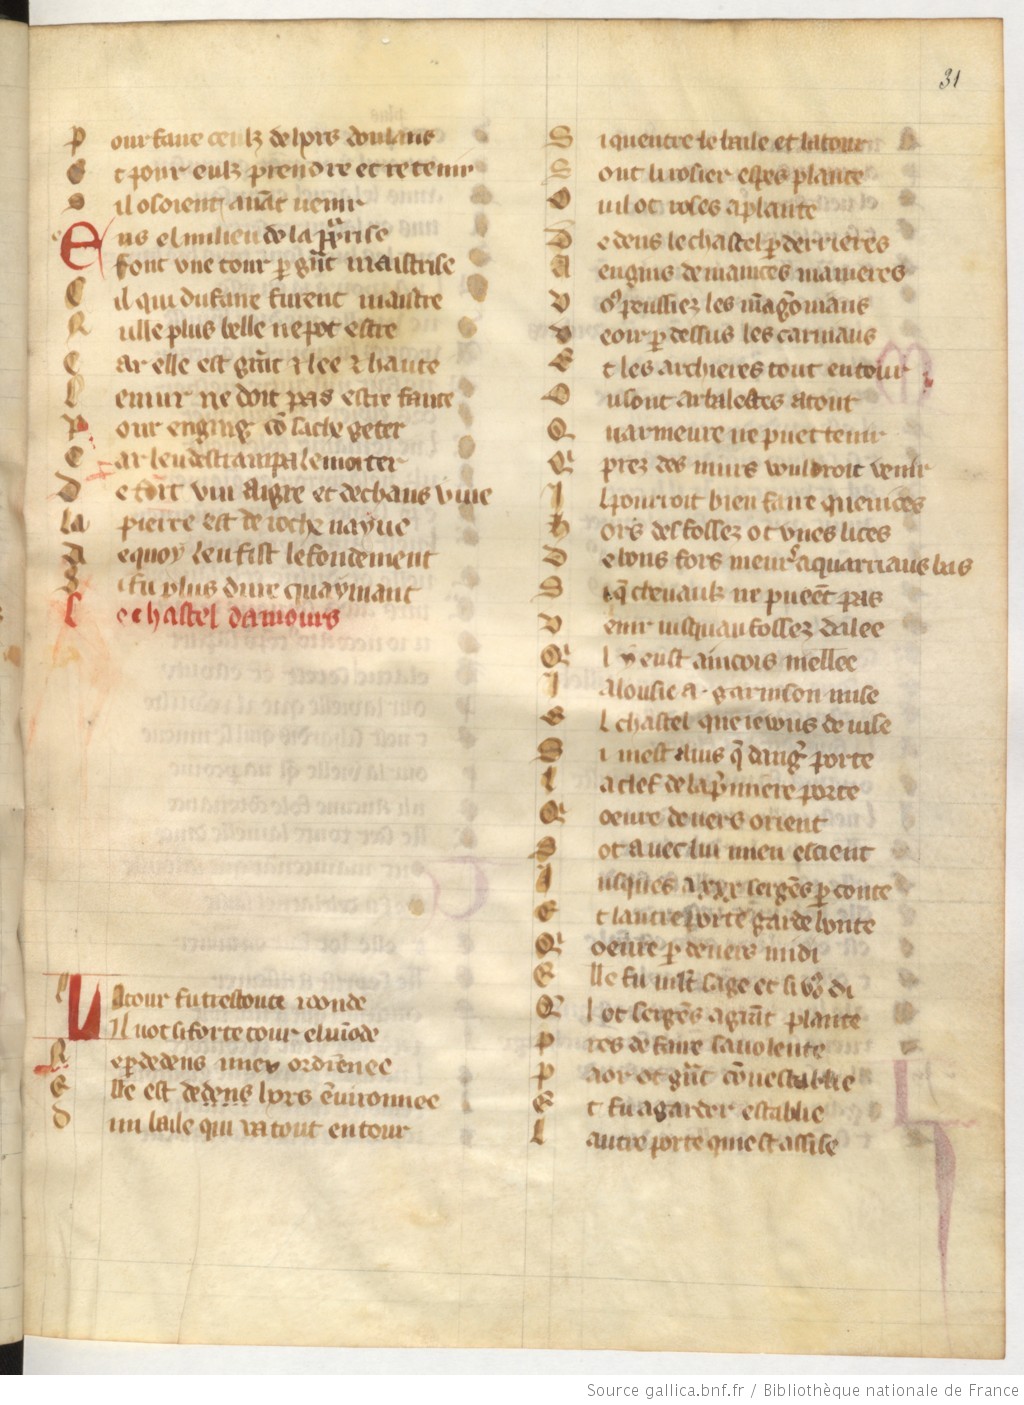 31
P our faire ceulz dehors doulans
E t pour eulz prendre et retenir
S il osoient auāt uenir
E ns el milieu de la pꝑrise
E font vne tour ꝑ gn̄t maistrise
C il qui du faire furent maistre
N ulle plus belle ne pot estre
C ar elle est gn̄t ⁊ lee ⁊ haute
L e mur ne doit pas estre faute
P our enging cō sache geter
C ar leu destrampa le mortier
D e fort vin aigre et de chaus viue
La pierre est de roche nayue
D e quoy leu fist le fondement
S i fu plus dure quaymant
L e chastel damours
L A tour fu trestoute roonde
Il not si forte tour el mōde
N e ꝑ dedens mieux ordenee
E lle est dedens hors ēuironnee
D un baile qui va tout entour
S i quentre le baile et la tour
S ont li rosier espes plante
O u il ot roses a plante
D edens le chastel ꝑ derrieres
A engins de maintes manieres
V os peussiez les māgōniaus
V eoir ꝑ dessus les carniaus
E t les archieres tout entour
O u sont arbalestes atout
Q uarmeure ne puet tenir
Q prez des murs vouldroit venir
I l pourroit bien faire que nices
H ors des fossez ot vnes lices
D e bons fors meurs a quarriaus bas
S i q̄ cheuaulz ne pueēt pas
V enir iusquau fossez dalee
Q l ny eust aincois mellee
I alousie a garnison mise
E l chastel que ie vous deuise
S i mest auis q̄ dangr̄ porte
L a clef de la pꝛmiere porte
Q oeure deuers orient
S ot auec lui mien escient
I usques a xxx sergēs ꝑ conte
E t lautre porte garde honte
Q oeure ꝑ deuers midi
E lle fu ml̄t sage et si vo9 di
Q l ot sergēs a gn̄t plante
P res de faire sa uolente
P aor ot gn̄t cōnestablie
E t fu a garder establie
L autre porte qui est assise
Source gallica.bnf.fr / Bibliothèque nationale de France